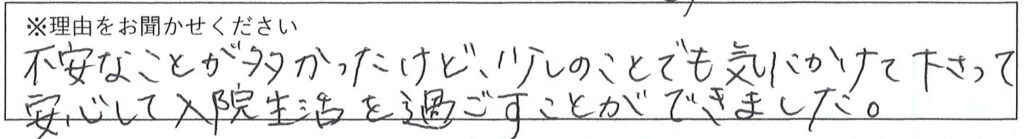 ※理由をお聞かせください
不安なことが多かったけど、少しのことでも気にかけて下さって
安心して入院生活を過ごすことができました。